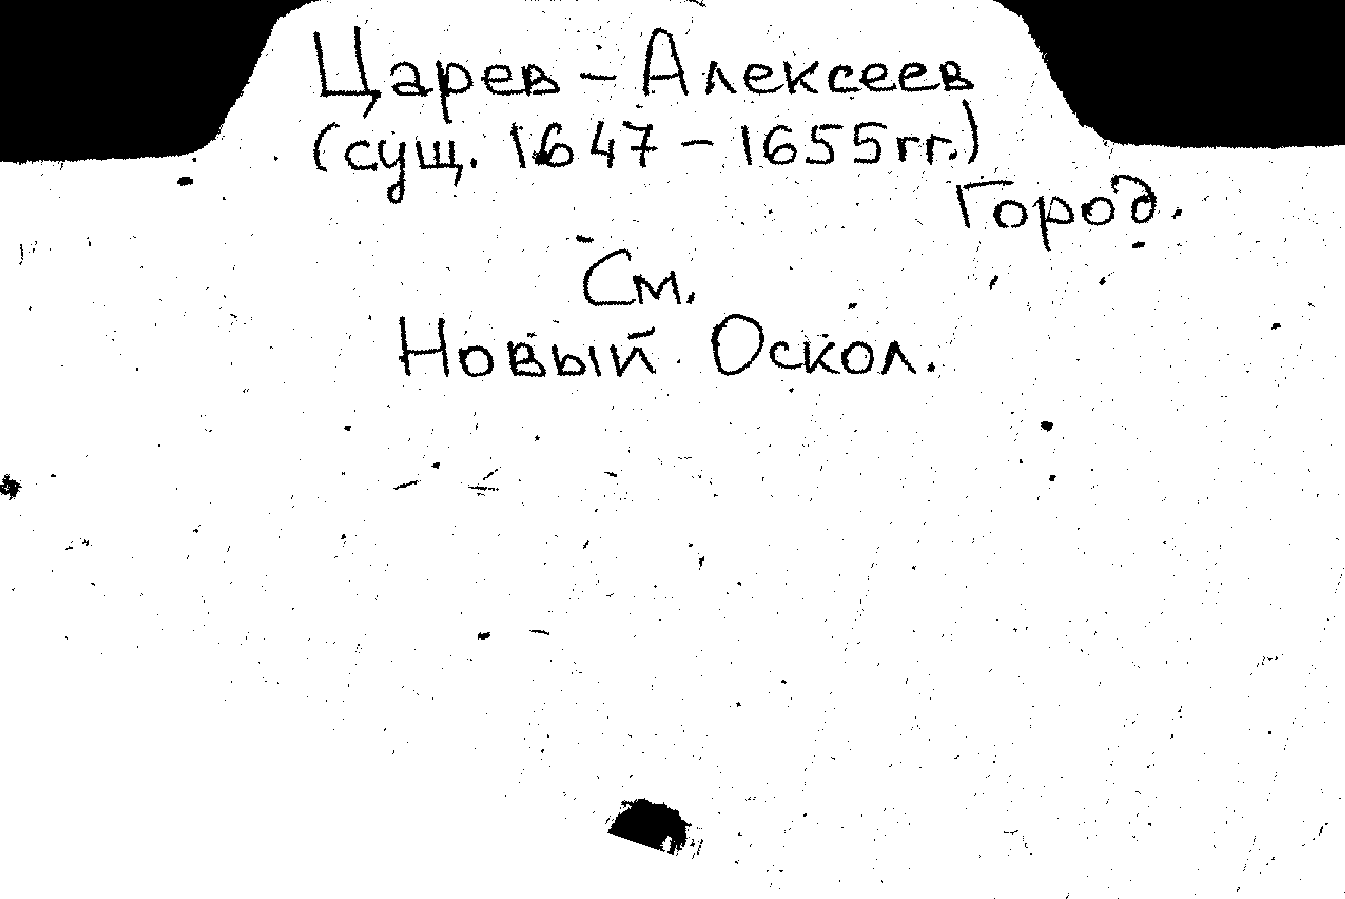 Царев - Алексеев
(сущ. 1647 - 1655 гг.)
Город.
См.
Новый Оскол.